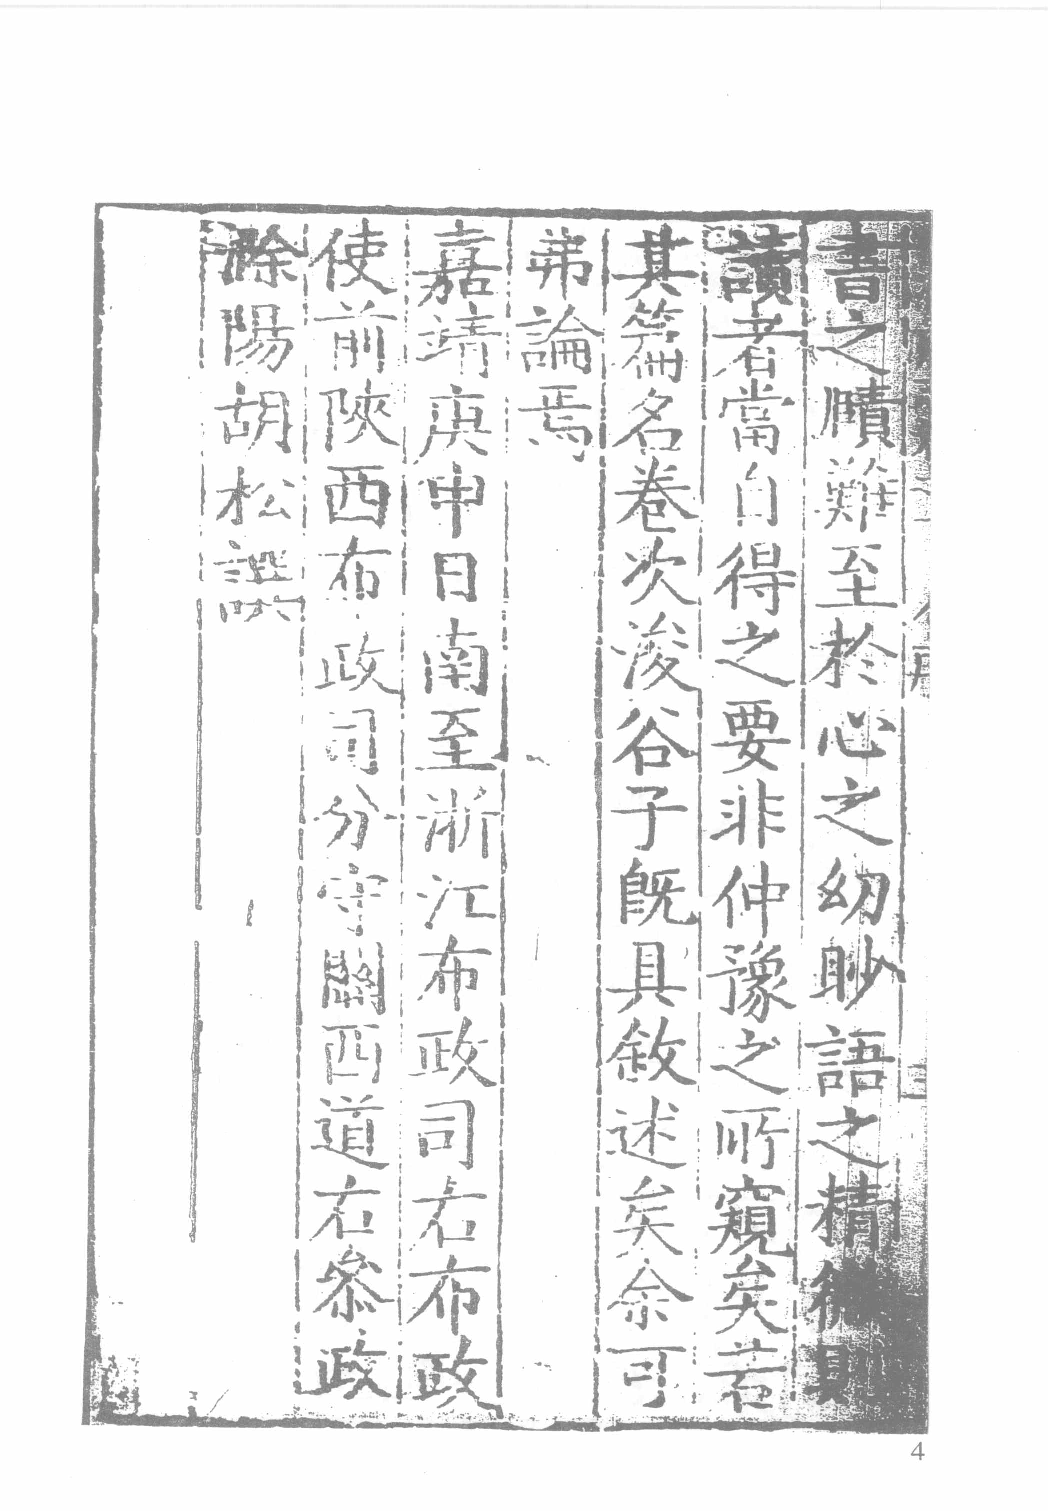 書之賾難至於心之幼眇語之精微則
讀者當自得之要非仲豫之所窺矣若
其篇名卷次浚谷子旣具敘述矣余可
弗論焉
嘉靖庚申日南至浙江布政司右布政
使前陝西布政司分守關西道右叅政
滁陽胡松譔
4